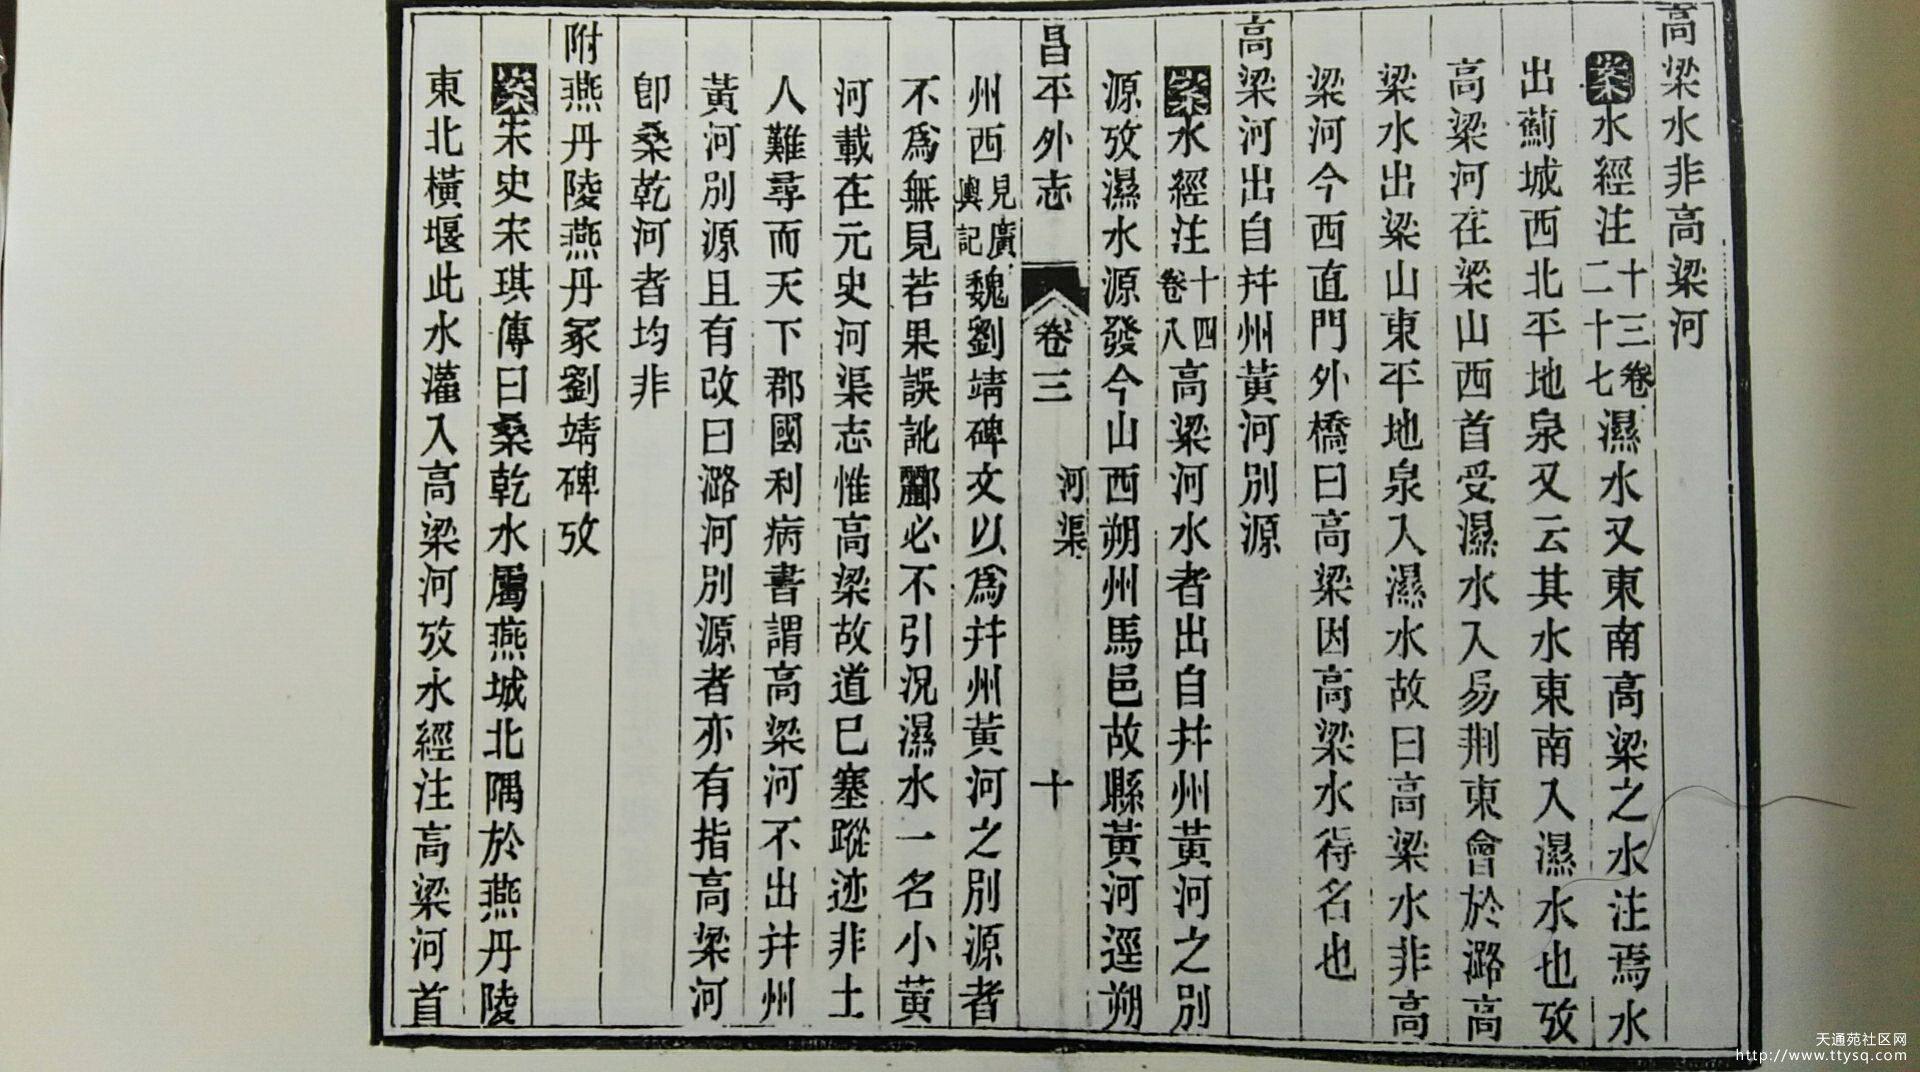 高梁水非高梁河
案水經注十三卷二十七濕水又東南高梁之水注焉水
出薊城西北平地泉又云其水東南入濕水也攷
高梁河在梁山西首受濕水入易荆東會於潞高
梁水出梁山東平地泉入濕水故曰高梁水非高
梁河今西直門外橋曰高梁因高梁水得名也
高梁河出自幷州黃河別源
案水經注十四卷八高梁河水者出自幷州黃河之別
源攷濕水源發今山西朔州馬邑故縣黃河逕朔
昌平外志 卷三 河渠 十
州西見廣輿記魏劉靖碑文以爲幷州黃河之別源者
不爲無見若果誤訛酈必不引況濕水一名小黃
河載在元史河渠志惟高梁故道已塞蹤迹非土
人難尋而天下郡國利病書謂高梁河不出幷州
黃河別源且有改曰潞河別源者亦有指高梁河
卽桑乾河者均非
附燕丹陵燕丹冢劉靖碑攷
案宋史宋琪傳曰桑乾水屬燕城北隅於燕丹陵
東北橫堰此水灌入高梁河攷水經注高梁河首
天通苑社区网
http://www.ttysq.com